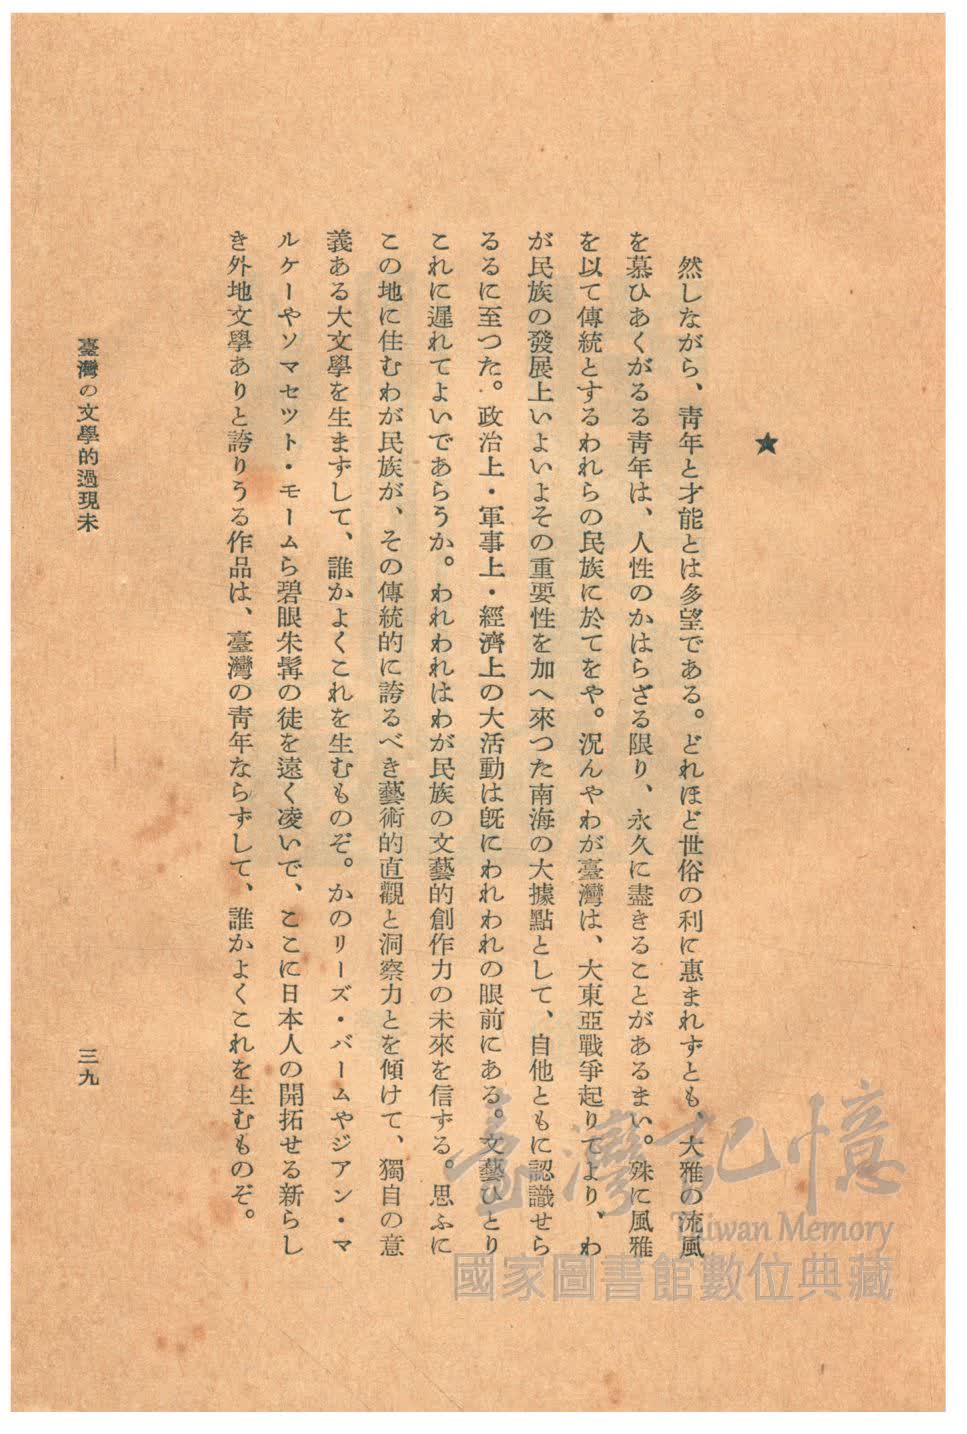 ★
然しながら、靑年と才能とは多望である。どれほど世俗の利に惠まれずとも、大雅の流風
を慕ひあくがるる靑年は、人性のかはらざる限り、永久に盡きることがあるまい。殊に風雅
を以て傳統とするわれらの民族に於てをや。況んやわが臺灣は、大東亞戰爭起りてより、わ
が民族の發展上いよいよその重要性を加へ來つた南海の大據點として、自他ともに認識せら
るるに至つた。政治上・軍事上・經濟上の大活動は旣にわれわれの眼前にある。文藝ひとり
これに遲れてよいであらうか。われわれはわが民族の文藝的創作力の未來を信ずる。思ふに
この地に住むわが民族が、その傳統的に誇るべき藝術的直觀と洞察力とを傾けて、獨自の意
義ある大文學を生まずして、誰かよくこれを生むものぞ。かのリーズ・バームやジアン・マ
ルケーやソマセツト・モームら碧眼朱髯の徒を遠く凌いで、ここに日本人の開拓せる新らし
き外地文學ありと誇りうる作品は、臺灣の靑年ならずして、誰かよくこれを生むものぞ。
臺灣の文學的過現未
三九
臺灣記憶
Taiwan Memory
國家圖書館數位典藏